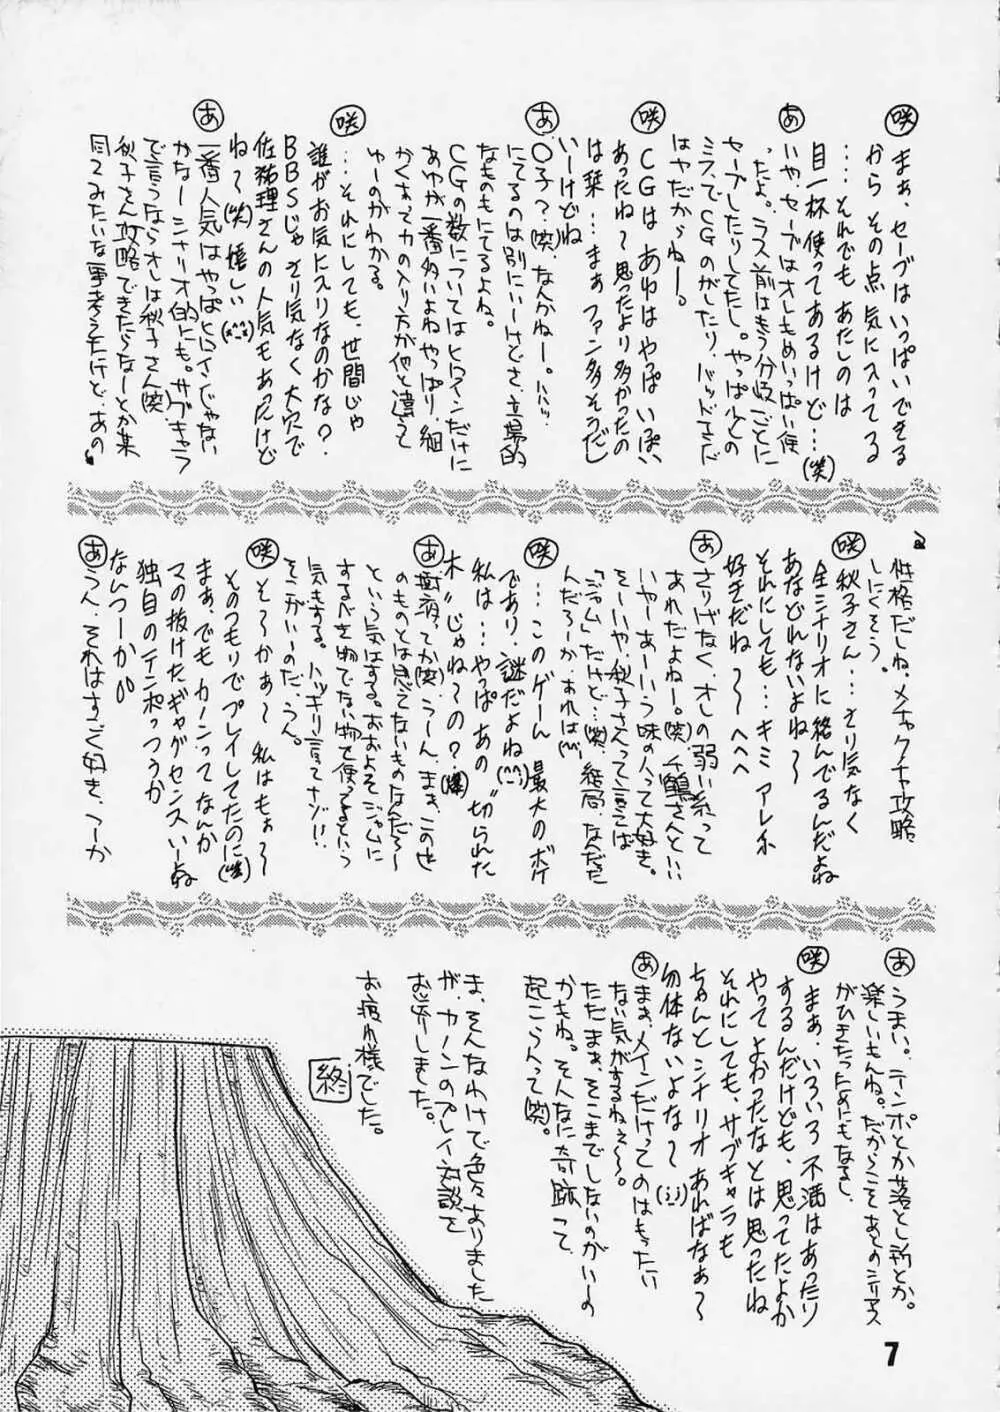 咲 まぁ、セーブはいっぱいできる
から その点 気に入ってる
…それでも あたしのは
目一杯使ってあるけど…(笑)
あ いやセーブはオレもめいっぱい使
ったよ。ラス前はもう分岐ごとに
セーブしたりしてたし。やっぱ少しの
ミスでCGのがしたり、バッドエンド
はやだからねー。
咲 CGは あゆはやっぱいっぱい
あったね～思ったより多かったの
は栞…まぁファン多そうだし
いーけどね
あ ○子？(笑)、なんかねー。ハハッ
にてるのは別にいーけどさ、立場的
なものもにてるよね。
CGの数についてはヒロインだけに
あゆが一番多いよねやっぱり、細
かくまで力の入り方が他と違う
ゆーのがわかる。
咲 …それにしても、世間じゃ
誰がお気に入りなのかな？
BBSじゃ さり気なく大穴で
佐祐理さんの人気もあったけど
ね～(笑) 嬉しい(^^)
あ 一番人気はやっぱヒロインじゃない
かなーシナリオ的にも。サブキャラ
で言うならオレは秋子さん(笑)
秋子さん攻略できたらなーとか某
同てみたいな事考えたけど、あの
性格だしね、メチャクチャ攻略
しにくそう。
咲 秋子さん…さり気なく
全シナリオに絡んでるんだよね
あなどれないよね～
それにしても…キミ アレネ
好きだね～～ヘヘヘ
あ さりげなく、オレの弱い系って
あれだよねー。(笑)、千鶴さんといい
いやーあーいう味の人って大好き。
そーいや、秋子さんって言えば
「ジャム」だけど…(笑)、結局、なんだた
んだろーか、あれは(^^;
咲 …このゲーム 最大のボケ
であり、謎だよね(^^;)
私は…やっぱ あの〝切られた
木〟じゃね～の？(爆)
あ 樹液ってか(笑)、うーん、まぁ、この世
のものとは思えないものなんだろー
という気はする。おおよそジャムに
するべき物でない物を使ってるという
気もする。ハッキリ言ってナゾ!!
そこがいーのだ、うん。
咲 そ～かぁ～ 私はもぉ～
そのつもりでプレイしてたのに(笑)
まぁ、でも カノンってなんか
マの抜けたギャグセンスいーよね
独自のテンポっつうか
なんつーか
あ うん、それはすごく好き、つーか
あ うまい。テンポとか落とし所とか。
楽しいもんね。だからこそあとのシリアス
がひきたったあにもなるし
咲 まぁ、いろいろ不満はあったり
するんだけども、思ってたよか
やってよかったなとは思ったね
それにしても、サブキャラも
ちゃんとシナリオ あればなぁ～
勿体ないよな～(;;)
あ まぁ、メインだけってのはもったい
ない気がするねぇ～。
ただまぁ、そこまでしないのがいーの
かもね。そんなに奇跡って
起こらんって(笑)。
ま、そんなわけで色々ありました
が、カノンのプレイ対談を
お送りしました。
お疲れ様でした。
終
7